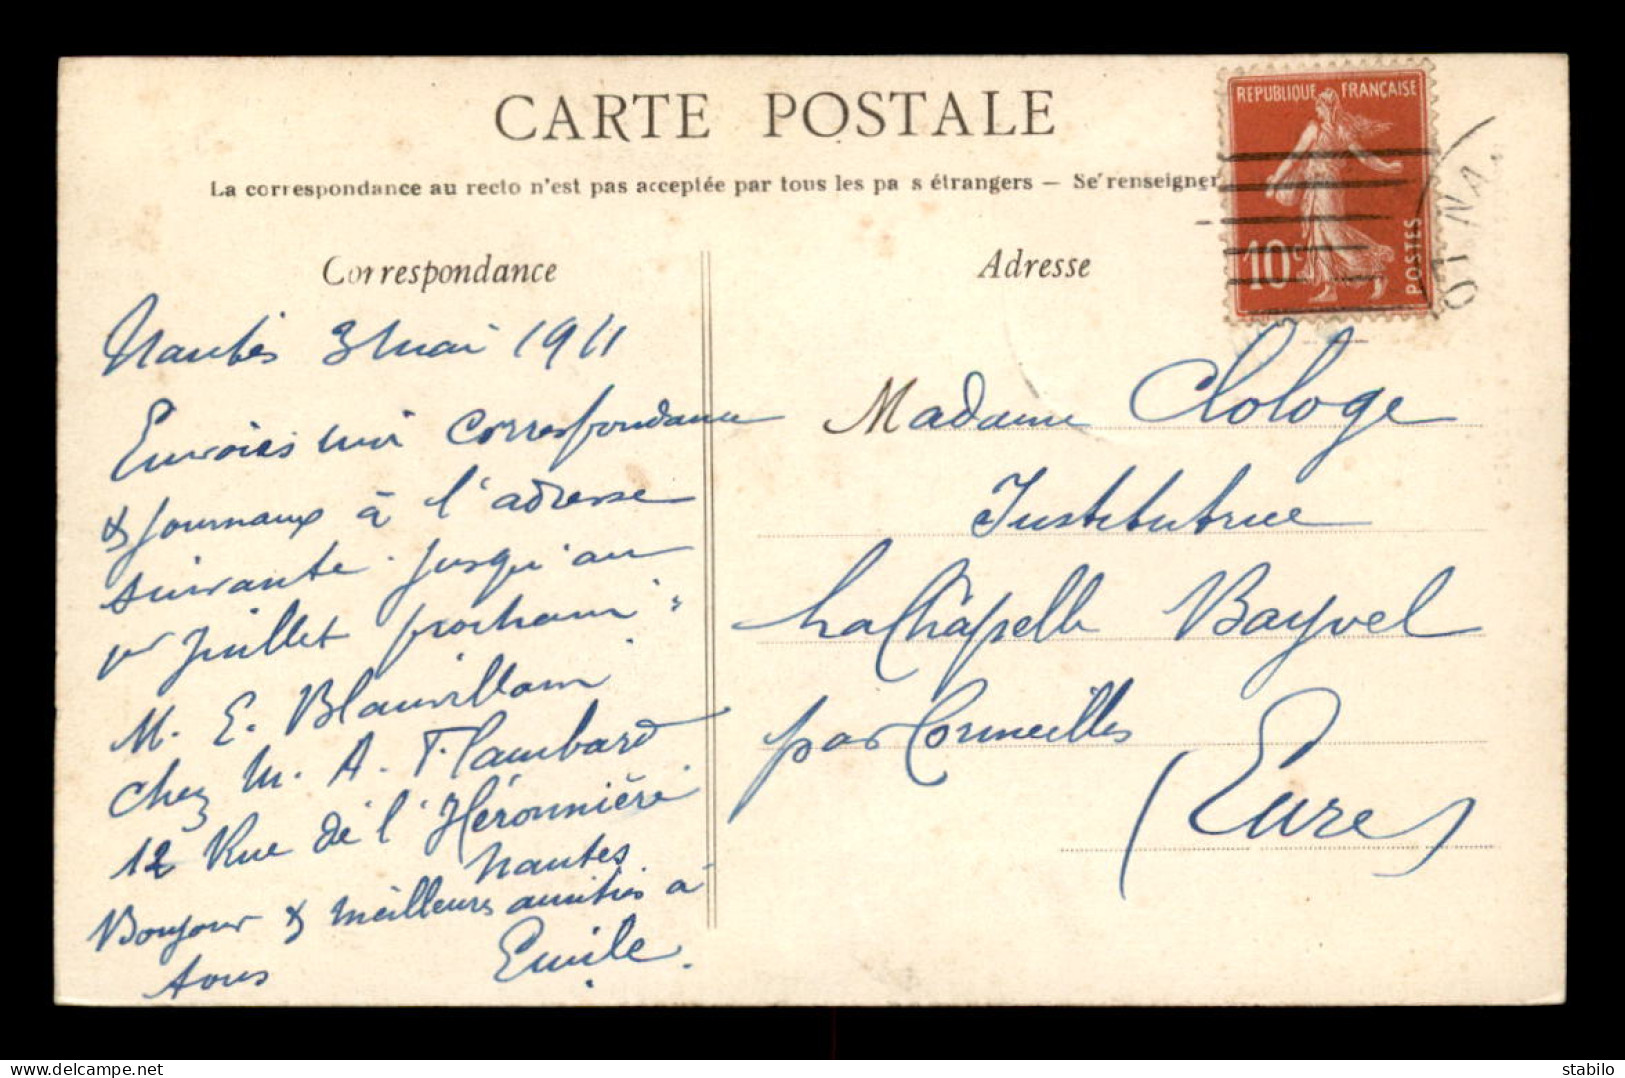 CARTE POSTALE
La correspondance au recto n'est pas acceptée par tous les pa s étrangers — Se renseigner
REPUBLIQUE FRANÇAISE
10c
POSTES
Correspondance
Nantes 3 mai 1911
Envoies moi correspondance
& journaux à l'adresse
suivante. Jusqu'au
1er Juillet prochain :
M. E. Blanvillain
chez M. A. Flambard
12 Rue de l'Héronnière
Nantes
Bonjour & meilleures amitiés à
tous Emile.
Adresse
Madame Clologe
Institutrice
La Chapelle Bayvel
par Cormeilles
(Eure)
delcampe.net
stabilo